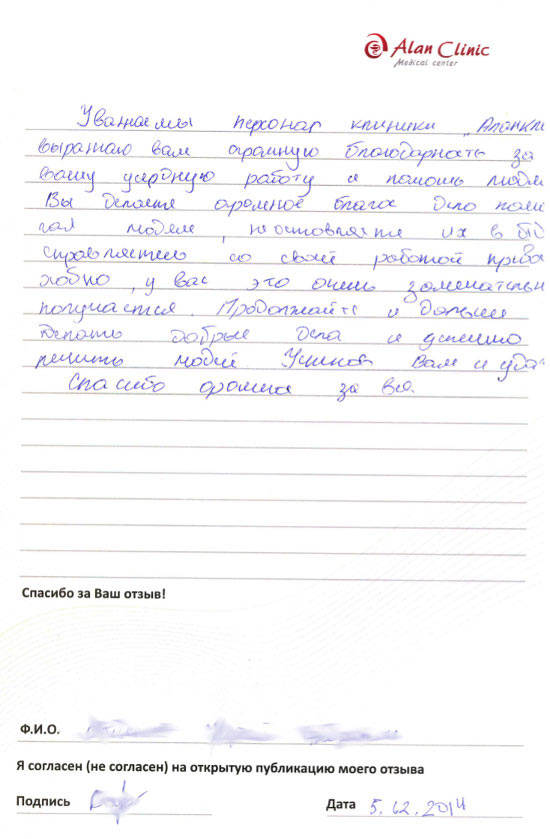 Alan Clinic
Medical center
Уважаемы персонал клиники „Аланкли
выражаю вам огромную благодарность за
вашу усердную работу и помощь людям
Вы делаете огромное благое дело помо
гая людям, неоставляете их в бед
справляетесь со своей работой прево
ходно, у вас это очень замечательн
получается. Продолжайте и дальше
делать добрые дела и успешно
лечить людей. Успехов Вам и удач
Спасибо огромное за все.
Спасибо за Ваш отзыв!
Ф.И.О.
Я согласен (не согласен) на открытую публикацию моего отзыва
Подпись
Дата 5.12.2014